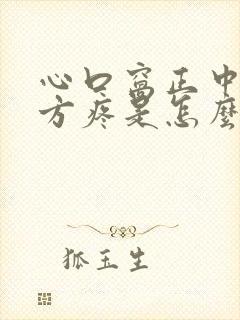 心口窝正中
方疼是怎麼
狐玉生